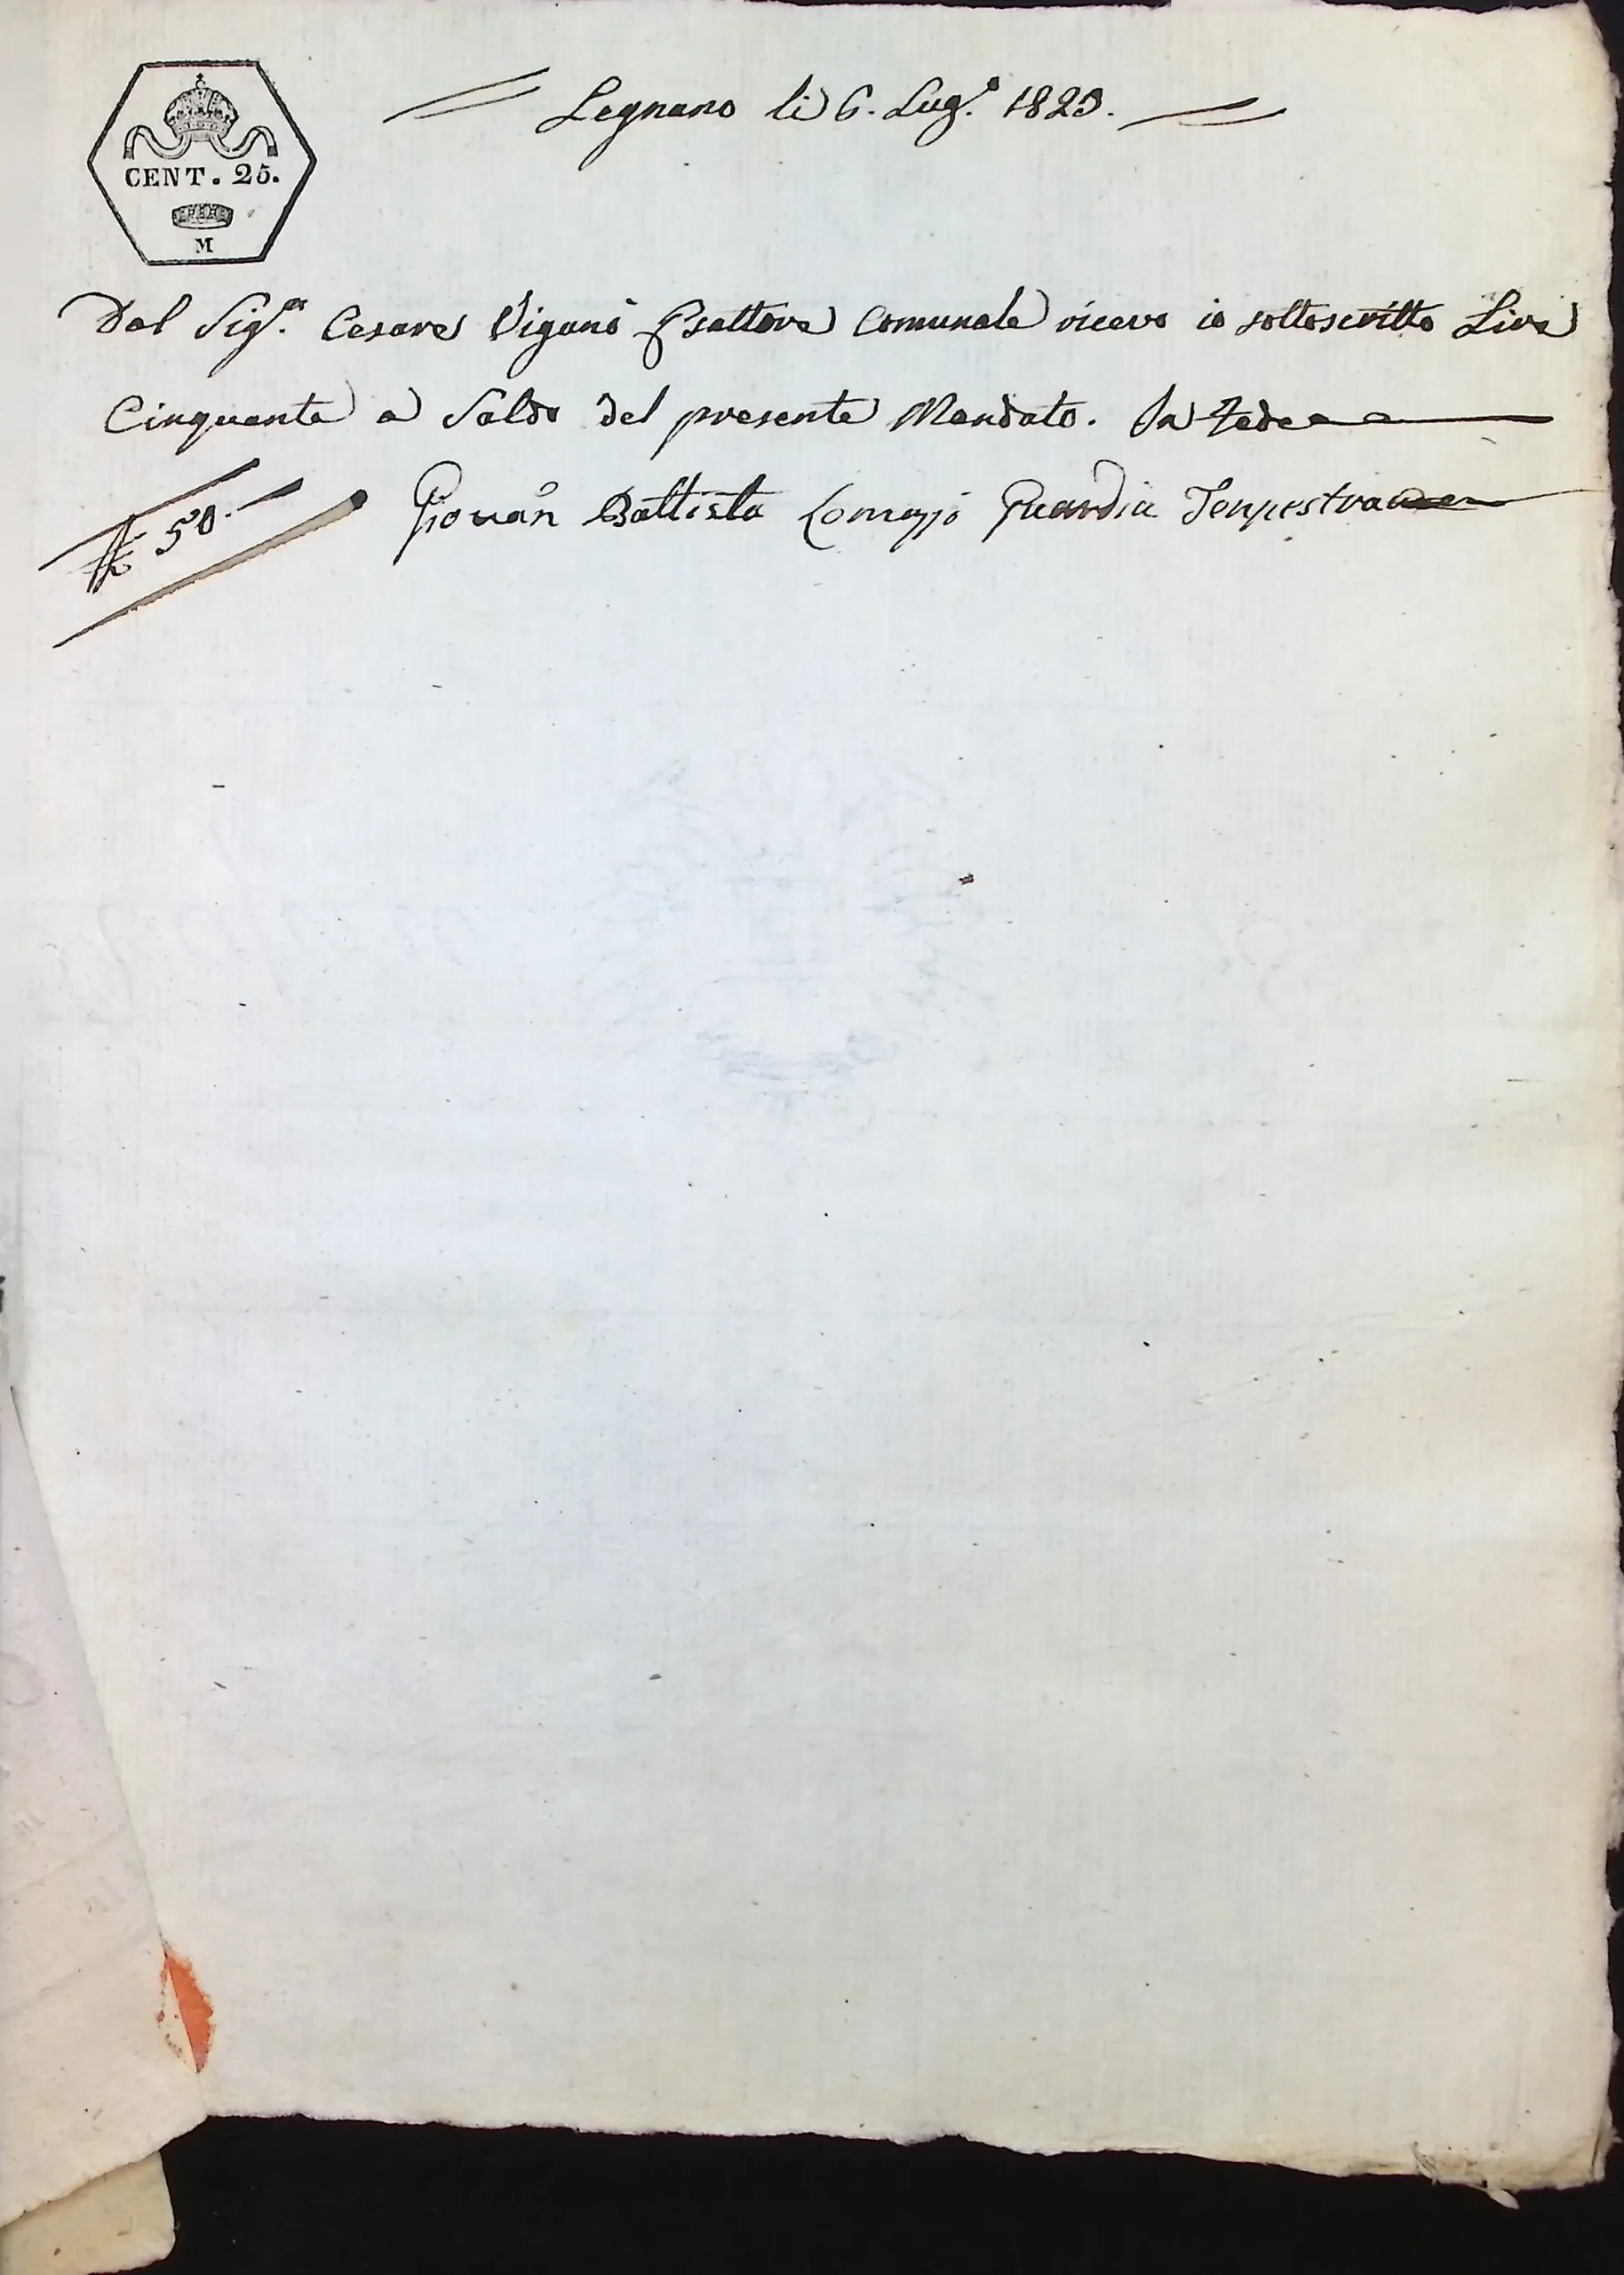 Legnano li 6. Lug.o 1823.
CENT. 25.
M
Dal Sig.r Cesare Viganò Esattore Comunale ricevo io sottoscritto Lire
Cinquanta a Saldo del presente Mandato. In fede
50.-
Giovan Battista Comajo Guardia Canpestra